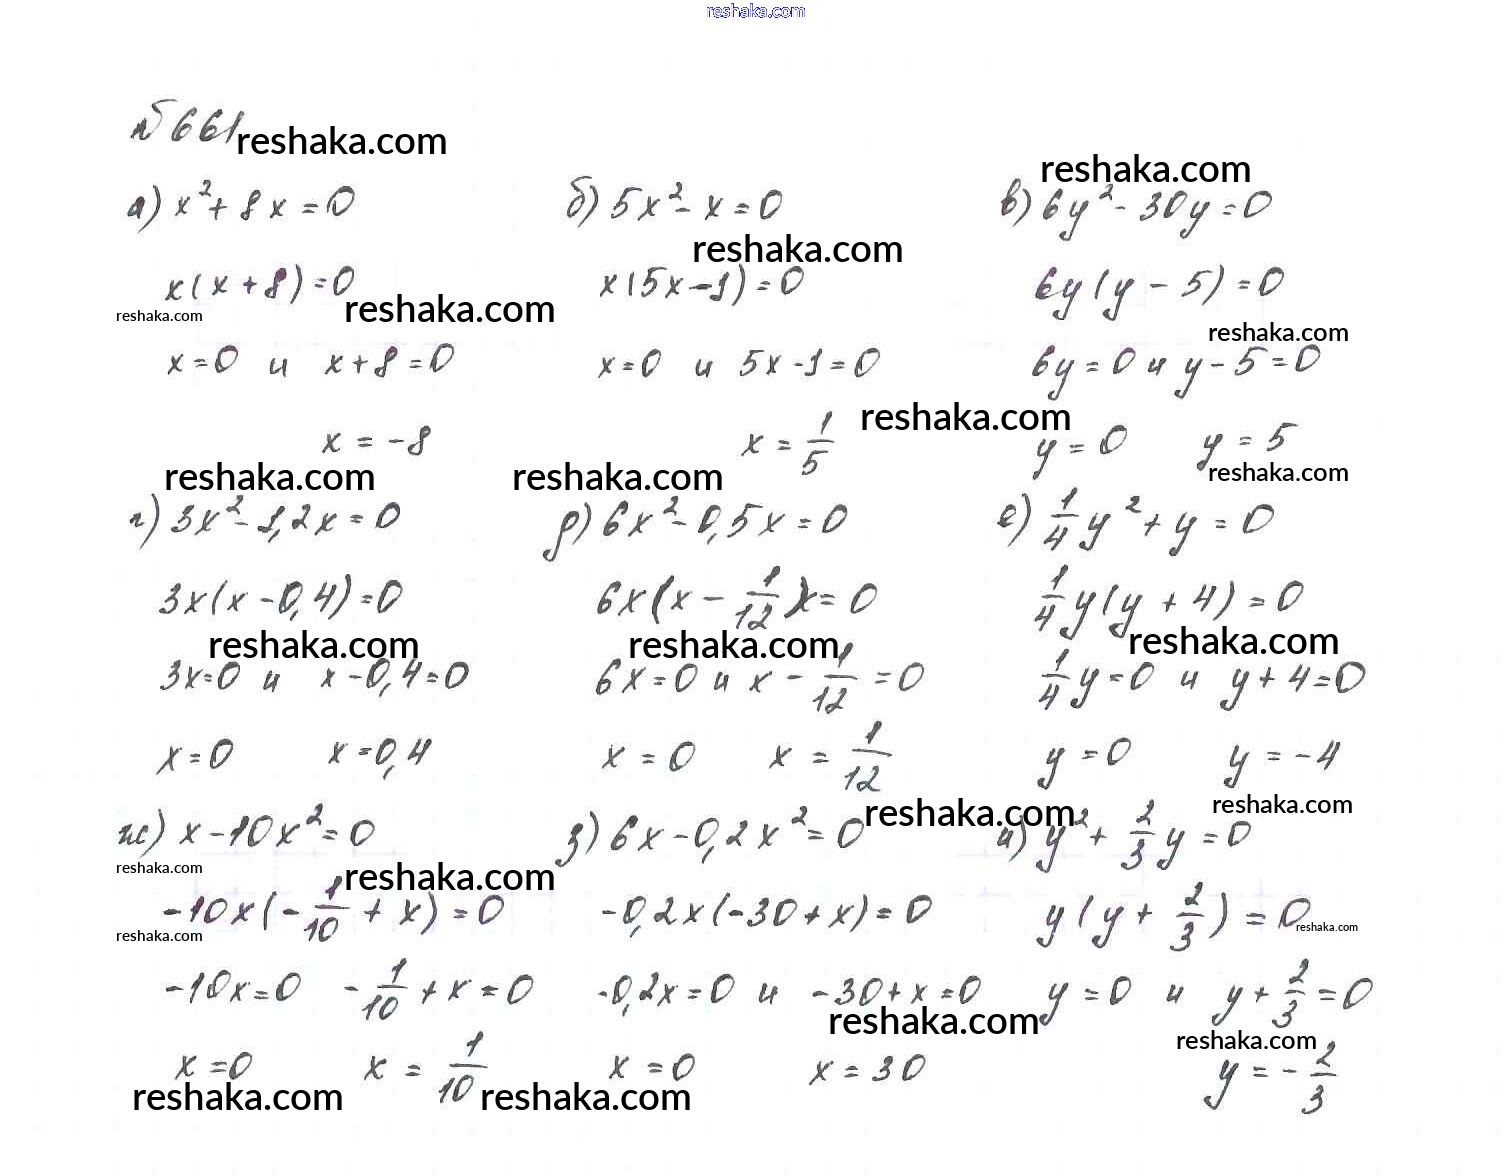 reshaka.com
№ 661 reshaka.com
reshaka.com
а) x² + 8x = 0 б) 5x² - x = 0 в) 6y² - 30y = 0
reshaka.com
x(x + 8) = 0 x(5x - 1) = 0 6y(y - 5) = 0
reshaka.com reshaka.com reshaka.com
x = 0 и x + 8 = 0 x = 0 и 5x - 1 = 0 6y = 0 и y - 5 = 0
reshaka.com
x = -8 x = 1/5 y = 0 y = 5
reshaka.com reshaka.com reshaka.com
г) 3x² - 1,2x = 0 д) 6x² - 0,5x = 0 е) 1/4 y² + y = 0
3x(x - 0,4) = 0 6x(x - 1/12) = 0 1/4 y(y + 4) = 0
reshaka.com reshaka.com reshaka.com
3x = 0 и x - 0,4 = 0 6x = 0 и x - 1/12 = 0 1/4 y = 0 и y + 4 = 0
x = 0 x = 0,4 x = 0 x = 1/12 y = 0 y = -4
reshaka.com reshaka.com
ж) x - 10x² = 0 з) 6x - 0,2x² = 0 и) y² + 2/3 y = 0
reshaka.com reshaka.com
-10x(-1/10 + x) = 0 -0,2x(-30 + x) = 0 y(y + 2/3) = 0
reshaka.com reshaka.com
-10x = 0 -1/10 + x = 0 -0,2x = 0 и -30 + x = 0 y = 0 и y + 2/3 = 0
reshaka.com reshaka.com
x = 0 x = 1/10 x = 0 x = 30 y = -2/3
reshaka.com reshaka.com